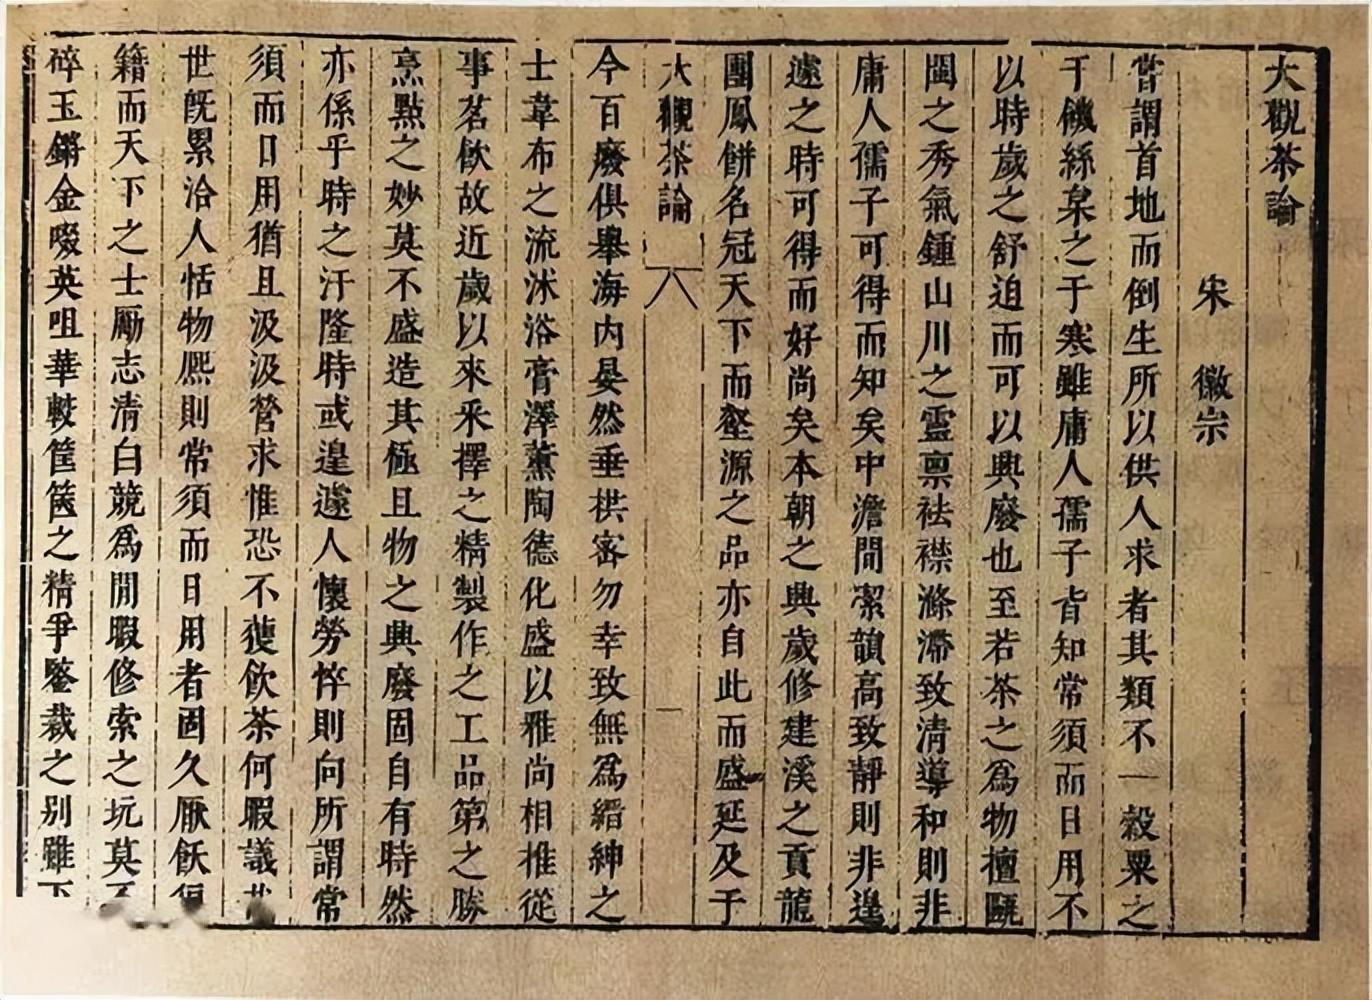 大觀茶論
宋 徽宗
嘗謂首地而倒生所以供人求者其類不一穀粟之
于饑絲枲之于寒雖庸人孺子皆知常須而日用不
以時歲之舒迫而可以興廢也至若茶之爲物擅甌
閩之秀氣鍾山川之靈禀袪襟滌滯致清導和則非
庸人孺子可得而知矣中澹閒潔韻高致靜則非遑
遽之時可得而好尚矣本朝之興歲修建溪之貢龍
團鳳餅名冠天下而壑源之品亦自此而盛延及于
大觀茶論 八 一
今百廢俱舉海内晏然垂拱密勿幸致無爲縉紳之
士韋布之流沐浴膏澤薰陶德化盛以雅尚相推從
事茗飲故近歲以來采擇之精製作之工品第之勝
烹點之妙莫不盛造其極且物之興廢固自有時然
亦係乎時之汙隆時或遑遽人懷勞悴則向所謂常
須而日用猶且汲汲營求惟恐不獲飲茶何暇議
世旣累洽人恬物熙則常須而日用者固久厭飫
籍而天下之士厲志清白競爲閒暇修索之玩莫
碎玉鏘金啜英咀華較筐篋之精爭鑒裁之别雖下